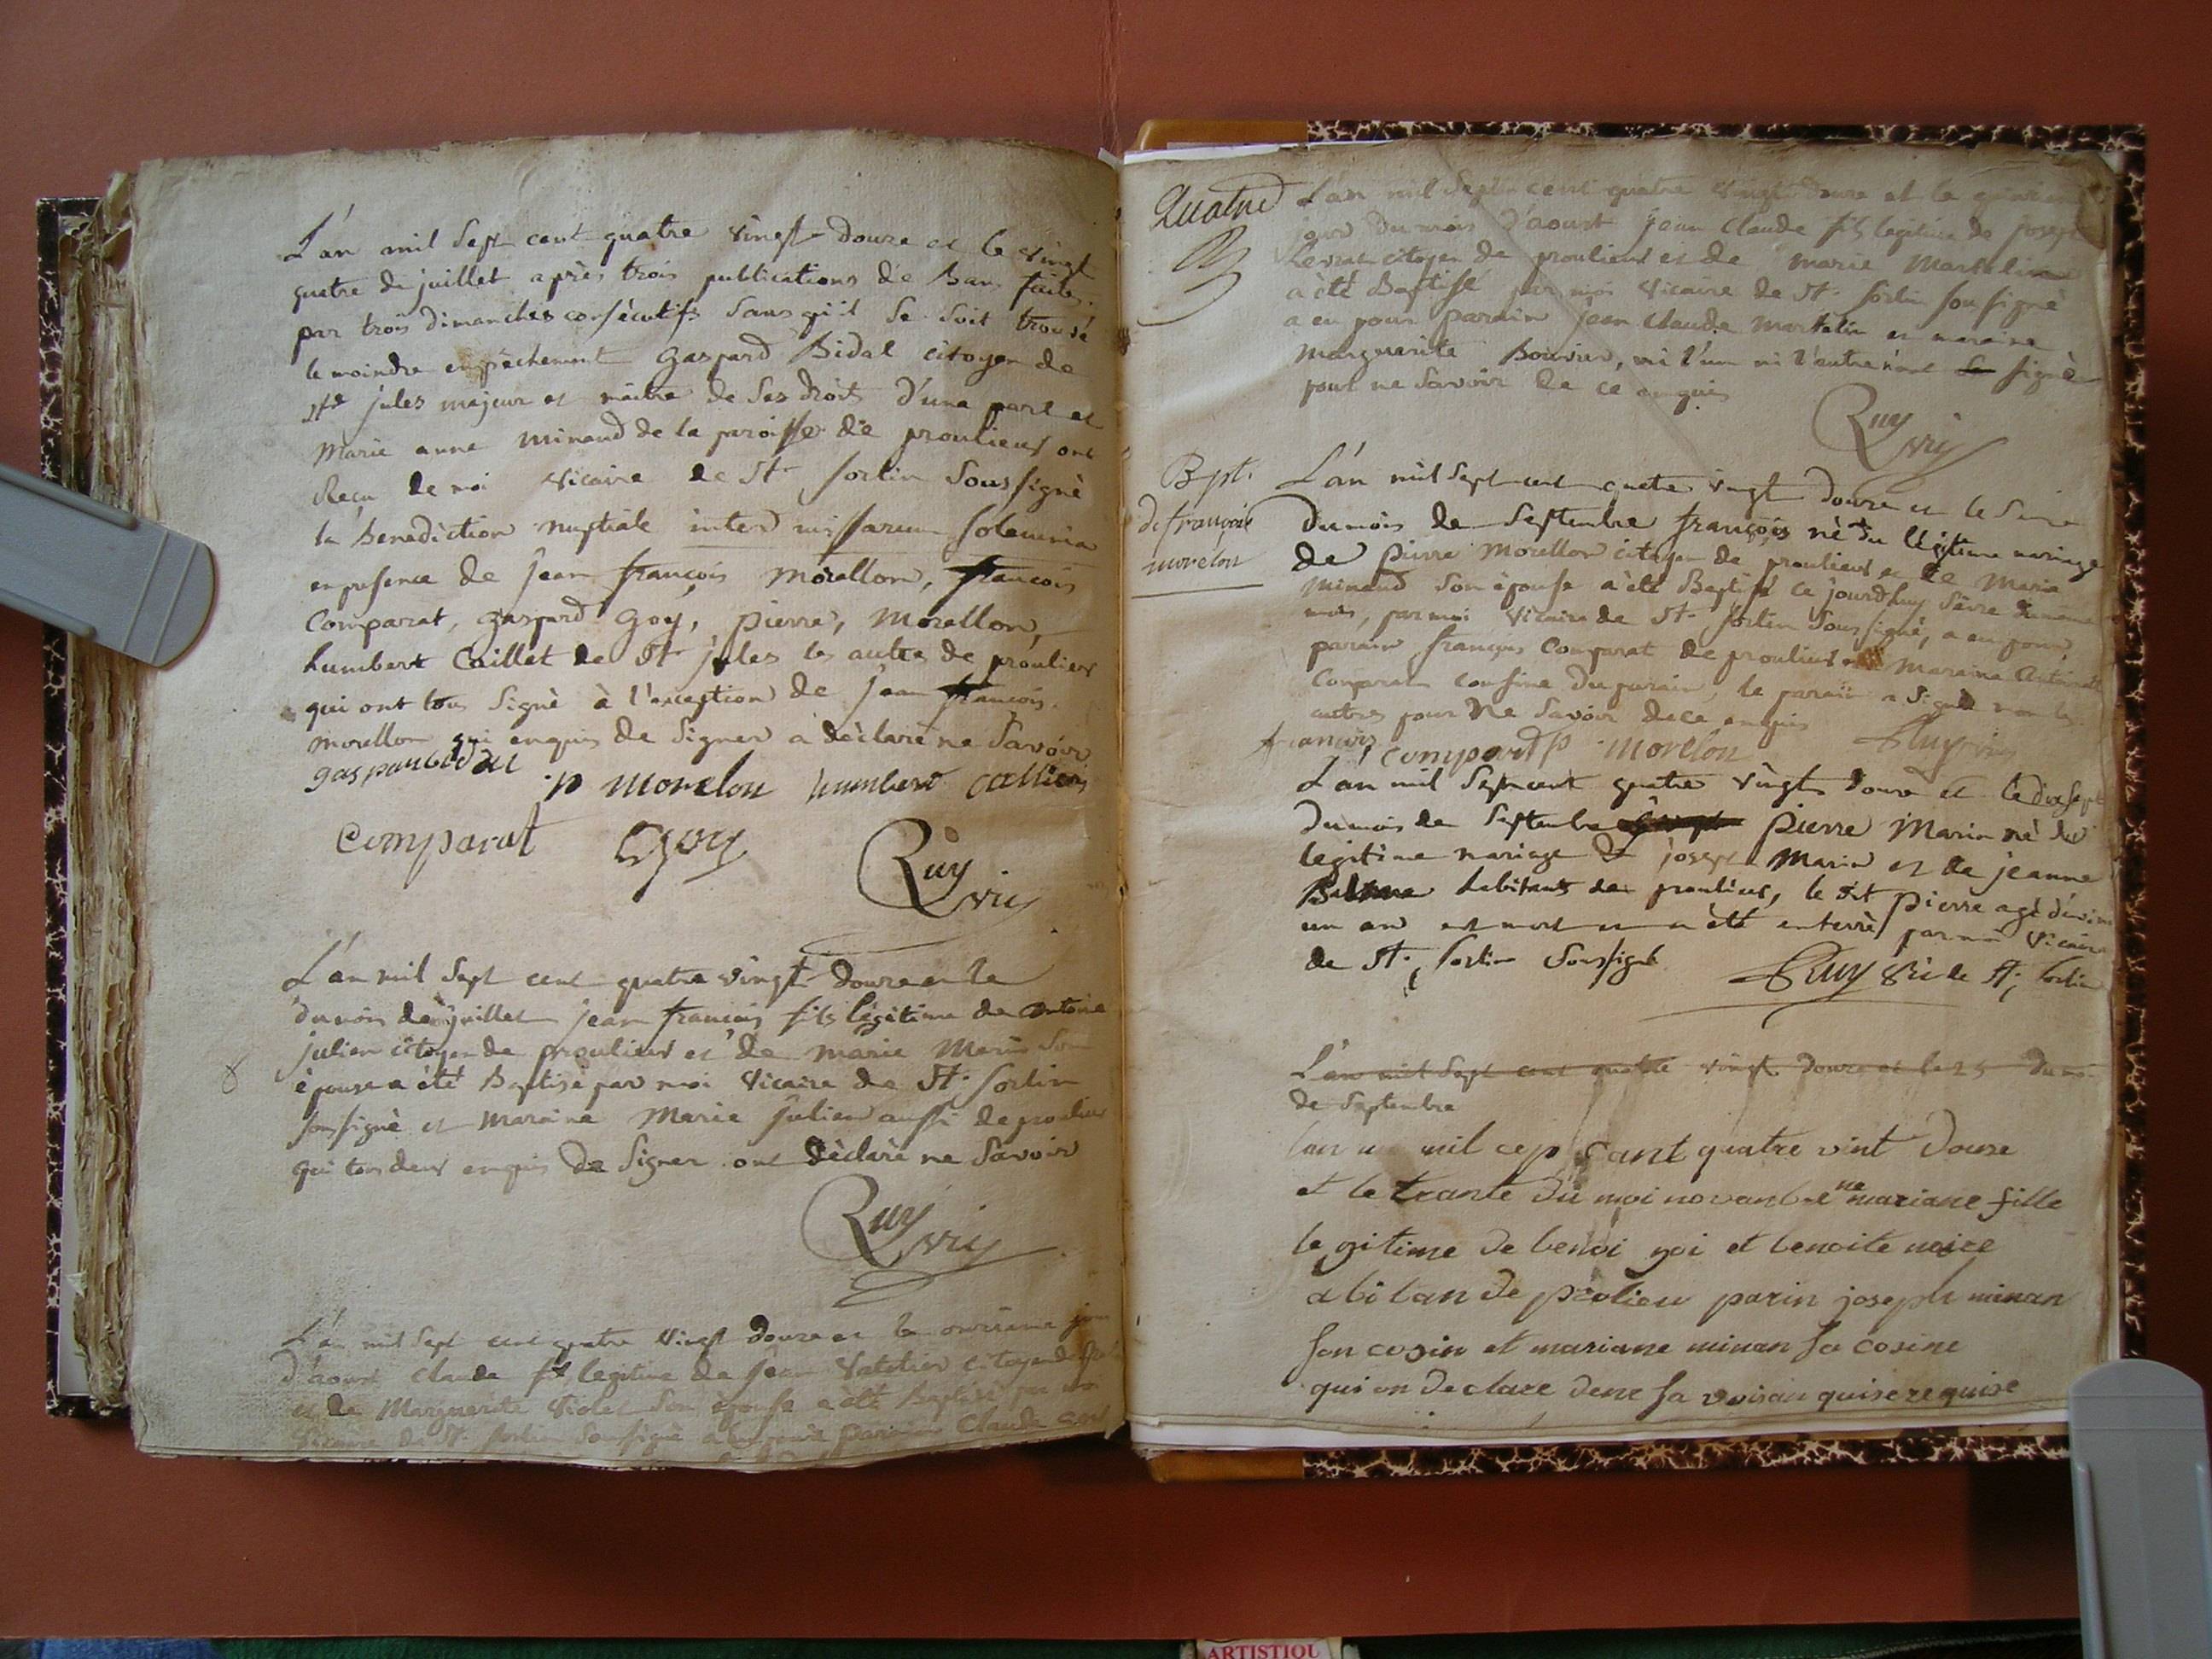 L'an mil Sept cent quatre vingt douze et le vingt
quatre de juillet après trois publications de Bans faites
par trois dimanches consécutifs Sans qu'il Se Soit trouvé
le moindre empêchement Gaspard Bidal citoyen de
Ste jules majeur et maître de Ses droits d'une part et
Marie anne minaud de la paroisse de proulieu ont
Reçu de moi Vicaire de St. Sorlin Soussigné
la Benediction nuptiale inter missarum Solemnia
en presence de jean françois Morellon, françois
Comparat, gaspard Goy, pierre, Morellon,
humbert Caillet de St jules les autres de proulieu
qui ont tous Signé à l'exception de jean françois
morellon qui enquis de Signer a déclaré ne Savoir
p morelon humbert
Comparat Goy
Ruy vic
L'an mil Sept cent quatre vingt douze et le
du mois de juillet jean françois fils légitime de Antoine
julien citoyen de proulieu et de marie Marin Son
épouse a été Baptisé par moi Vicaire de St. Sorlin
soussigné et maraine Marie julien aussi de proulieu
qui tous deux enquis de Signer ont déclaré ne Savoir
Ruy vic
L'an mil Sept cent quatre vingt douze et le onzieme jour
d'aoust Claude fs legitime de jean citoyen de
et de Marguerite Violet Son épouse a été Baptisé par moi
Vicaire de St. Sorlin Soussigné a eu pour parain Claude
Quatre
L'an mil Sept cent quatre vingt douze et le
jour du mois d'aoust jean Claude fils legitime de joseph
citoyen de proulieu et de marie Martelin
a été Baptisé par moi Vicaire de St. Sorlin sousigné
a eu pour parain jean Claude Martelin et maraine
Marguerite Bouvier, ni l'un ni l'autre n'ont signé
pour ne Savoir de ce enquis
Ruy vic
Bpt.
de françois
morelon
L'an mil Sept cent quatre vingt douze et le Seize
du mois de Septembre françois né du légitime mariage
de pierre Morellon citoyen de proulieu et de Marie
Minaud Son épouse a été Baptisé ce jourdhuy Seize du meme
mois, par moi Vicaire de St. Sorlin Soussigné, a eu pour
parain françois Comparat de proulieu maraine
Comparat cousine du parain, le parain a Signé non les
autres pour Ne Savoir de ce enquis
françois comparat p morelon Ruy vic
L'an mil Sept cent quatre vingt douze et le dix Sept
du mois de Septembre pierre Marin né du
legitime mariage de joseph Marin et de jeanne
habitants de proulieu, le dit pierre agé d'environ
un an est mort et a été enterré par moi Vicaire
de St. Sorlin Soussigné Ruy vic de St. Sorlin
L'an mil Sept cent quatre vingt douze et le 25 du mois
de Septembre
lan mil cep cant quatre vint douze
et le trante du moi novanbre ne mariane fille
le gitime de benoi goi et benoite
abitan de prolieu parin joseph minan
son cosin et mariane minan sa cosine
qui on declare dene sa voisin quise requise